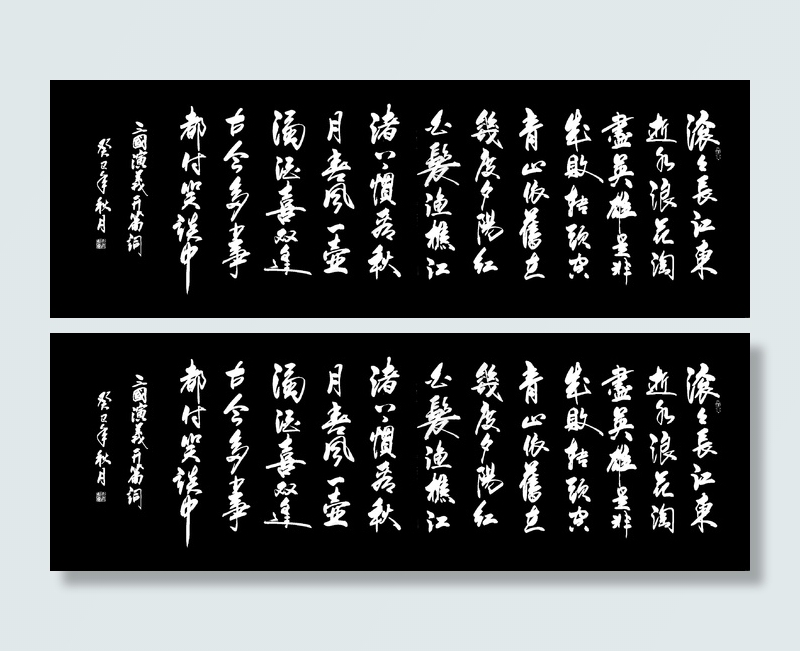 滚々長江東
逝水浪花淘
盡英雄是非
成敗转頭空
青山依舊在
幾度夕陽紅
白髮漁樵江
渚上慣看秋
月春風一壺
濁酒喜双逢
古今多少事
都付笑談中
三國演義开篇詞
癸巳年秋月
滚々長江東
逝水浪花淘
盡英雄是非
成敗转頭空
青山依舊在
幾度夕陽紅
白髮漁樵江
渚上慣看秋
月春風一壺
濁酒喜双逢
古今多少事
都付笑談中
三國演義开篇詞
癸巳年秋月